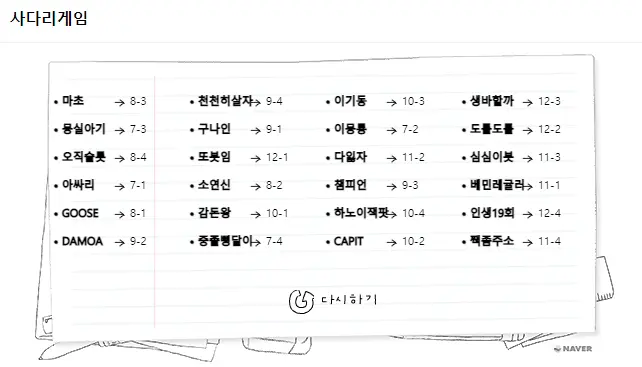 사다리게임
• 마초 → 8-3 • 천천히살자 → 9-4 • 이기동 → 10-3 • 생바할까 → 12-3
• 몽실아기 → 7-3 • 구나인 → 9-1 • 이뭉룡 → 7-2 • 도롤도롤 → 12-2
• 오직슬롯 → 8-4 • 또봇임 → 12-1 • 다잃자 → 11-2 • 심심이봇 → 11-3
• 아싸리 → 7-1 • 소연신 → 8-2 • 챔피언 → 9-3 • 베민레귤러 → 11-1
• GOOSE → 8-1 • 감돈왕 → 10-1 • 하노이잭팟 → 10-4 • 인생19회 → 12-4
• DAMOA → 9-2 • 중졸삥달이 → 7-4 • CAPIT → 10-2 • 짹좀주소 → 11-4
다시하기
NAVER